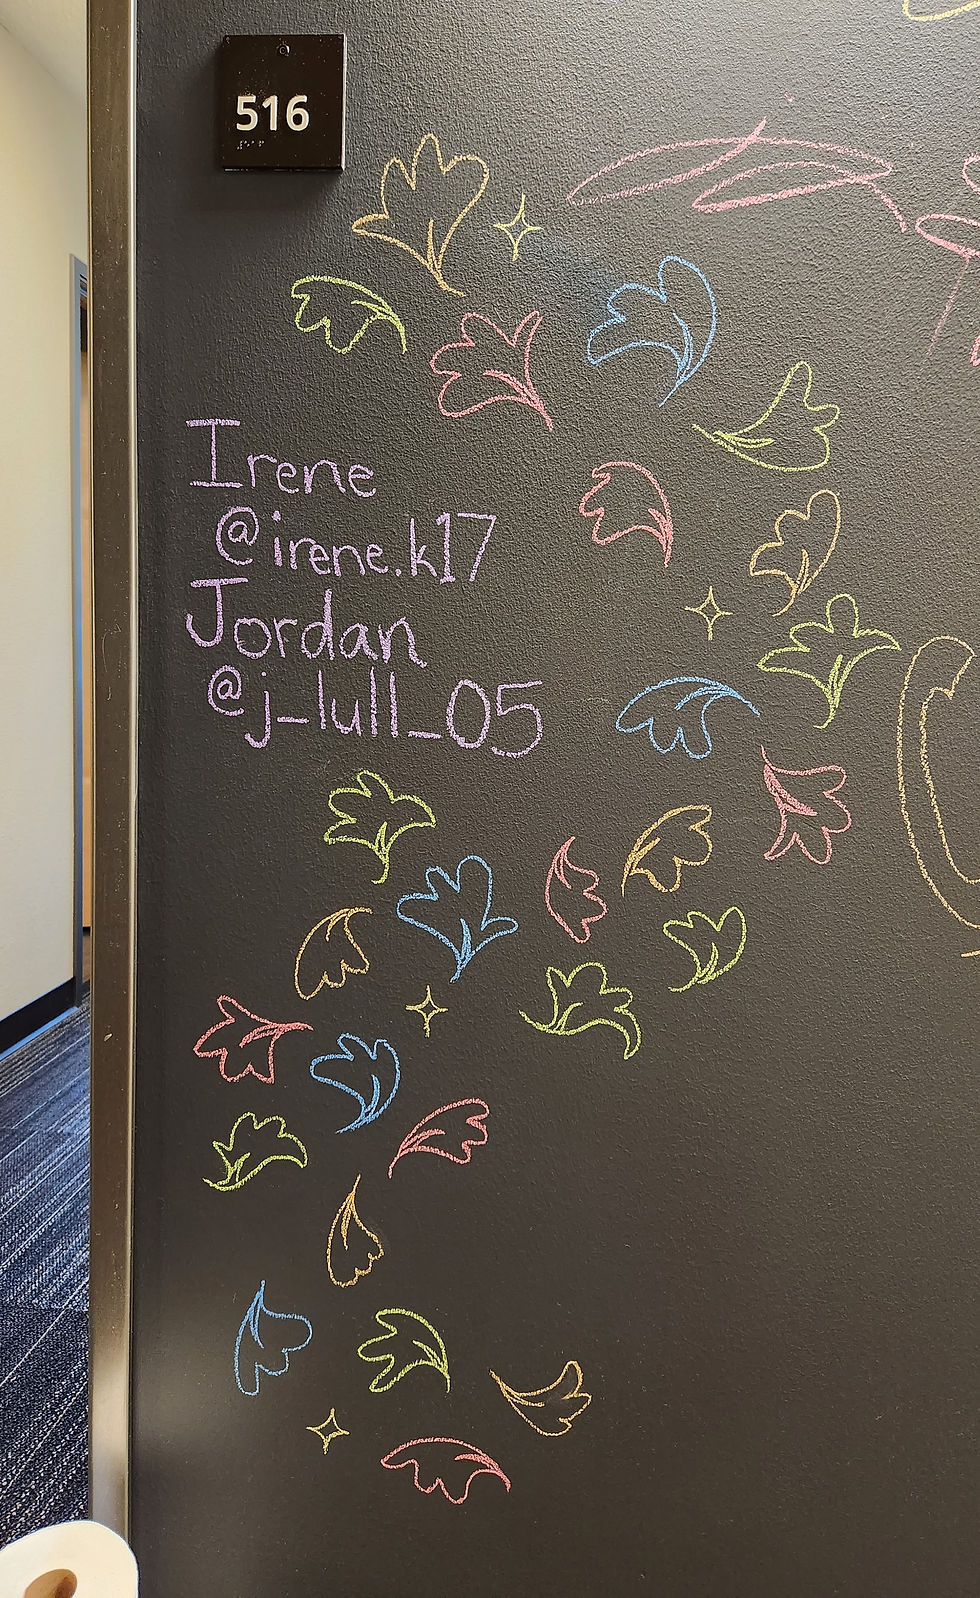 516
Irene
@irene.k17
Jordan
@j_lull_05